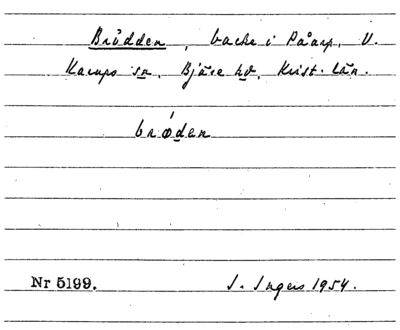 Brödden, backe i Påarp, V.
Karups sn. Bjäre hd. Krist. län.
brǿden
Nr 5199.
I. Ingers 1954.